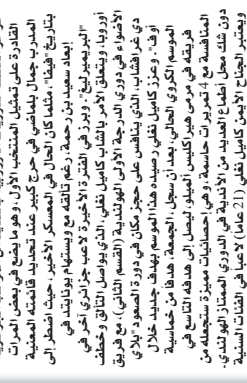 القادرة على تمثيل المنتخب الأول، وهو ما يضع في بعض المرات
المدرب جمال بلماضي في حرج كبير عند تحديد قائمته المعنية
بتاريخ "فيفا"، مثلما كان الحال في المعسكر الأخير، حيث اضطر إلى
إبعاد سعيد بن رحمة، رغم تألقه مع ويستهام يونايتد في
"البريميرليغ"، وبرز في الفترة الأخيرة لاعب جزائري آخر في
أوروبا، ويتعلق الأمر بالشاب كاميل نغلي، الذي يواصل التألق وخطف
الأضواء في دوري الدرجة الأولى الهولندية (القسم الثاني)، مع فريق
دي غرافشاب، الذي ينافس على حجز مكان في دورة الصعود "بلاي
أوف". وعزز كاميل نغلي رصيده هذا الموسم بهدف جديد خلال
الموسم الكروي الحالي، بعد أن سجل، الجمعة، هدفا من خماسية
فريقه في مرمى هيراكليس ألميلو، ليصل إلى هدفه التاسع في
المنافسة مع 4 تمريرات حاسمة، وهي إحصائيات مميزة ستجعله من
دون شك محل أطماع العديد من الأندية في الدوري الممتاز الهولندي.
ويعتبر الجناح الأيمن كاميل نغلي (21 عاما) لاعبا في الفئات السنية